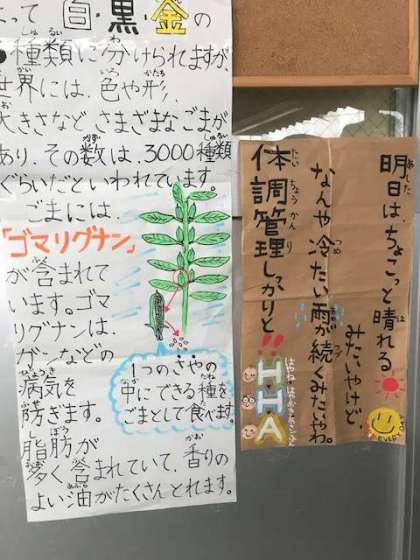 よって、白・黒・金の
●種類に分けられますが
世界には、色や形、
大きさなどさまざまなごまが
あり、その数は、3000種類
ぐらいだといわれています。
ごまには、
「ゴマリグナン」
が含まれて
います。ゴマ
リグナンは
ガンなどの
病気を
防ぎます。
脂肪が
多く含まれていて、香りの
よい油がたくさんとれます。
1つのさやの
中にできる種を
ごまとして食べます。
明日は、ちょこっと晴れる
みたいやけど、
なんや冷たい雨が続くみたいやわ。
体調管理しっかりと!!
HHA